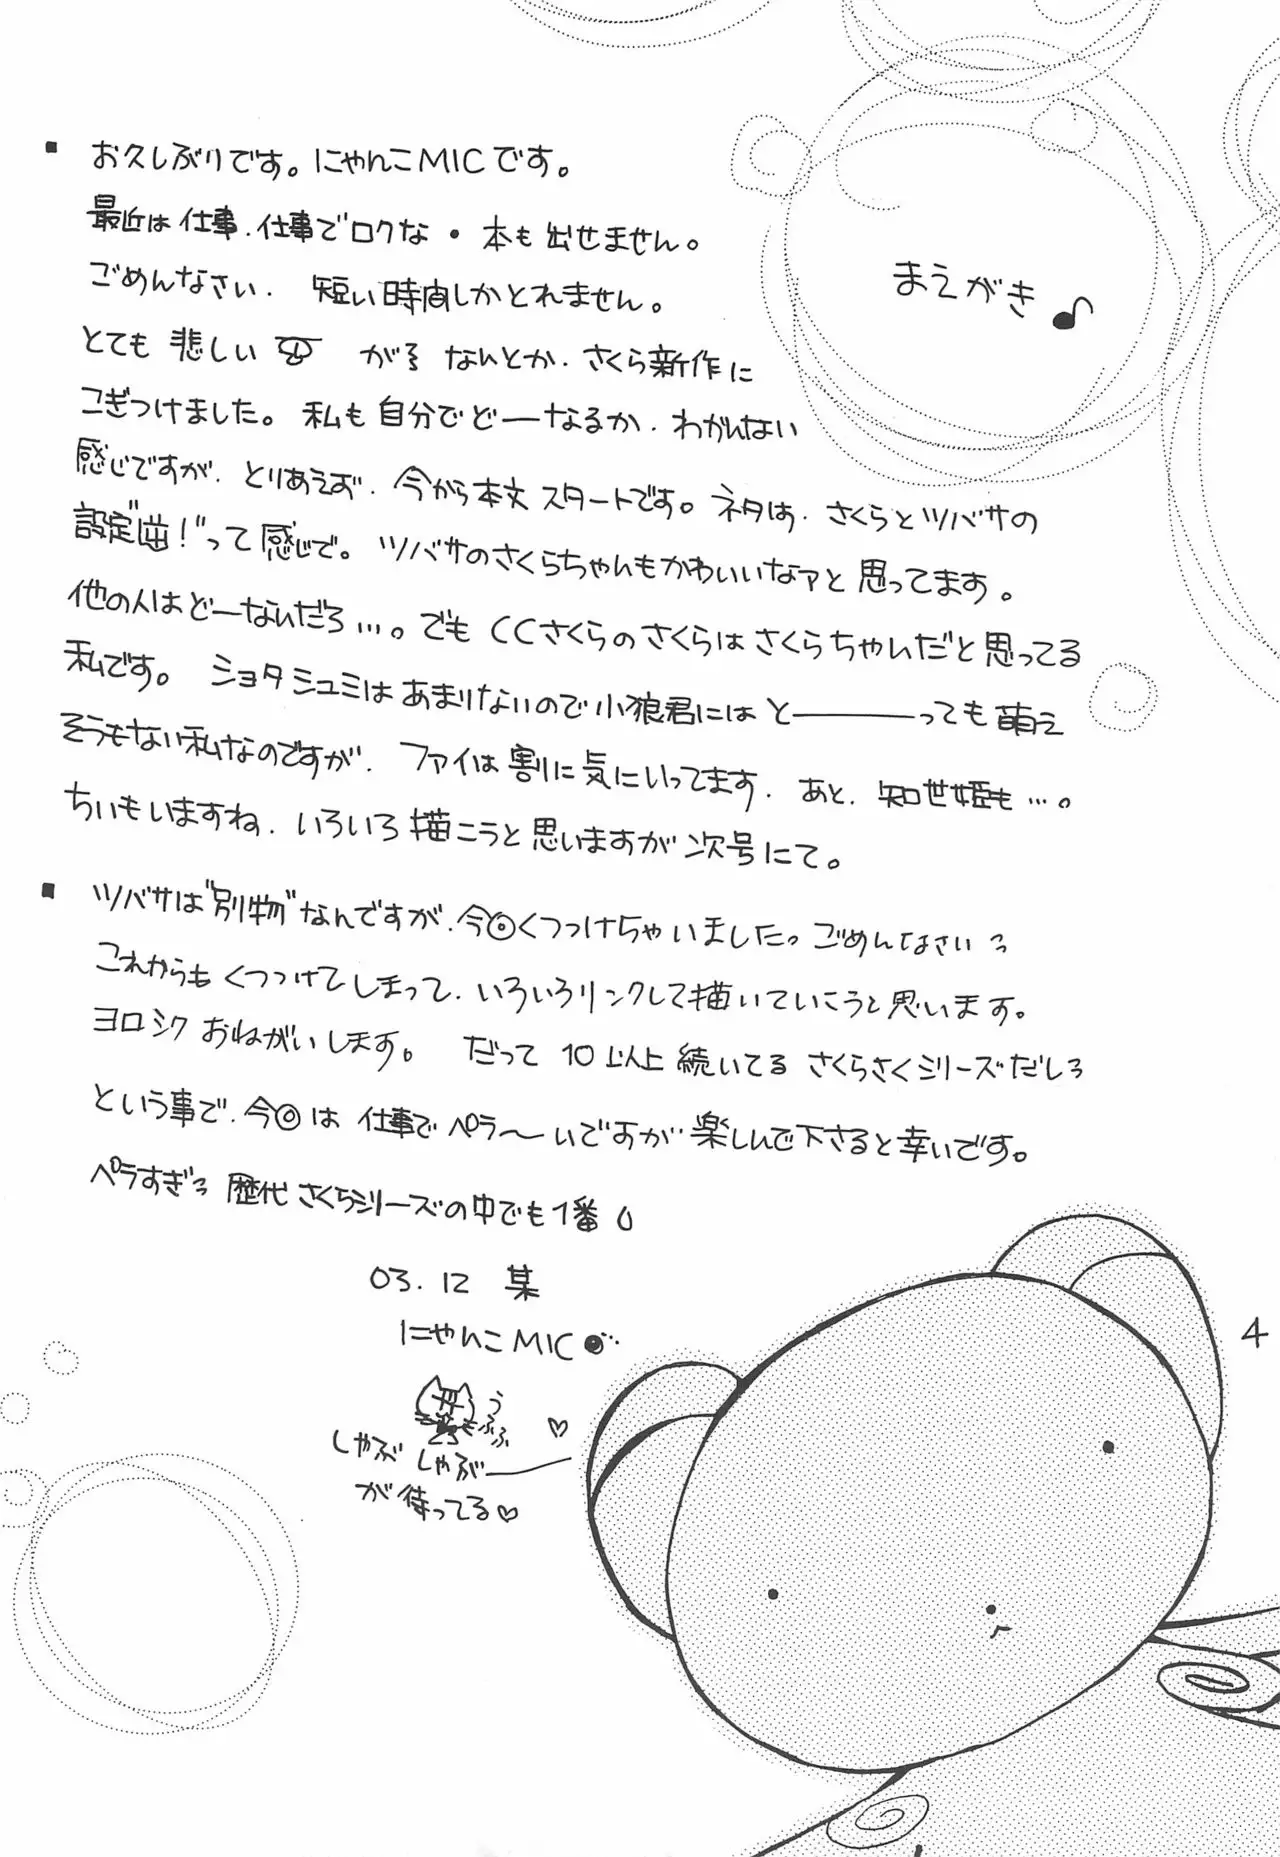 まえがき♪
■ お久しぶりです。にゃんこMICです。
最近は仕事.仕事でロクな・本も出せません。
ごめんなさい. 短い時間しかとれません。
とても悲しい が なんとか.さくら新作に
こぎつけました。私も自分でどーなるか.わかんない
感じですが.とりあえず.今から本文スタートです。ネタは.さくらとツバサの
設定"逆!"って感じで。ツバサのさくらちゃんもかわいいなァと思ってます。
他の人はどーなんだろ…。でもCCさくらのさくらはさくらちゃんだと思ってる
私です。 ショタシュミはあまりないので小狼君にはと―――っても萌え
そうもない私なのですが.ファイは割に気にいってます.あと.知世姫も…。
ちぃもいますね.いろいろ描こうと思いますが次号にて。
■ ツバサは"別物"なんですが.今回くっつけちゃいました。ごめんなさいっ
これからもくっつけてしまって.いろいろリンクして描いていこうと思います。
ヨロシクおねがいします。 だって10以上続いてるさくらさくシリーズだしっ
という事で.今回は仕事でペラ〜いですが楽しんで下さると幸いです。
ペラすぎっ歴代さくらシリーズの中でも1番
03.12 某
にゃんこMIC
うふふ
しゃぶしゃぶ
が待ってる♡
4